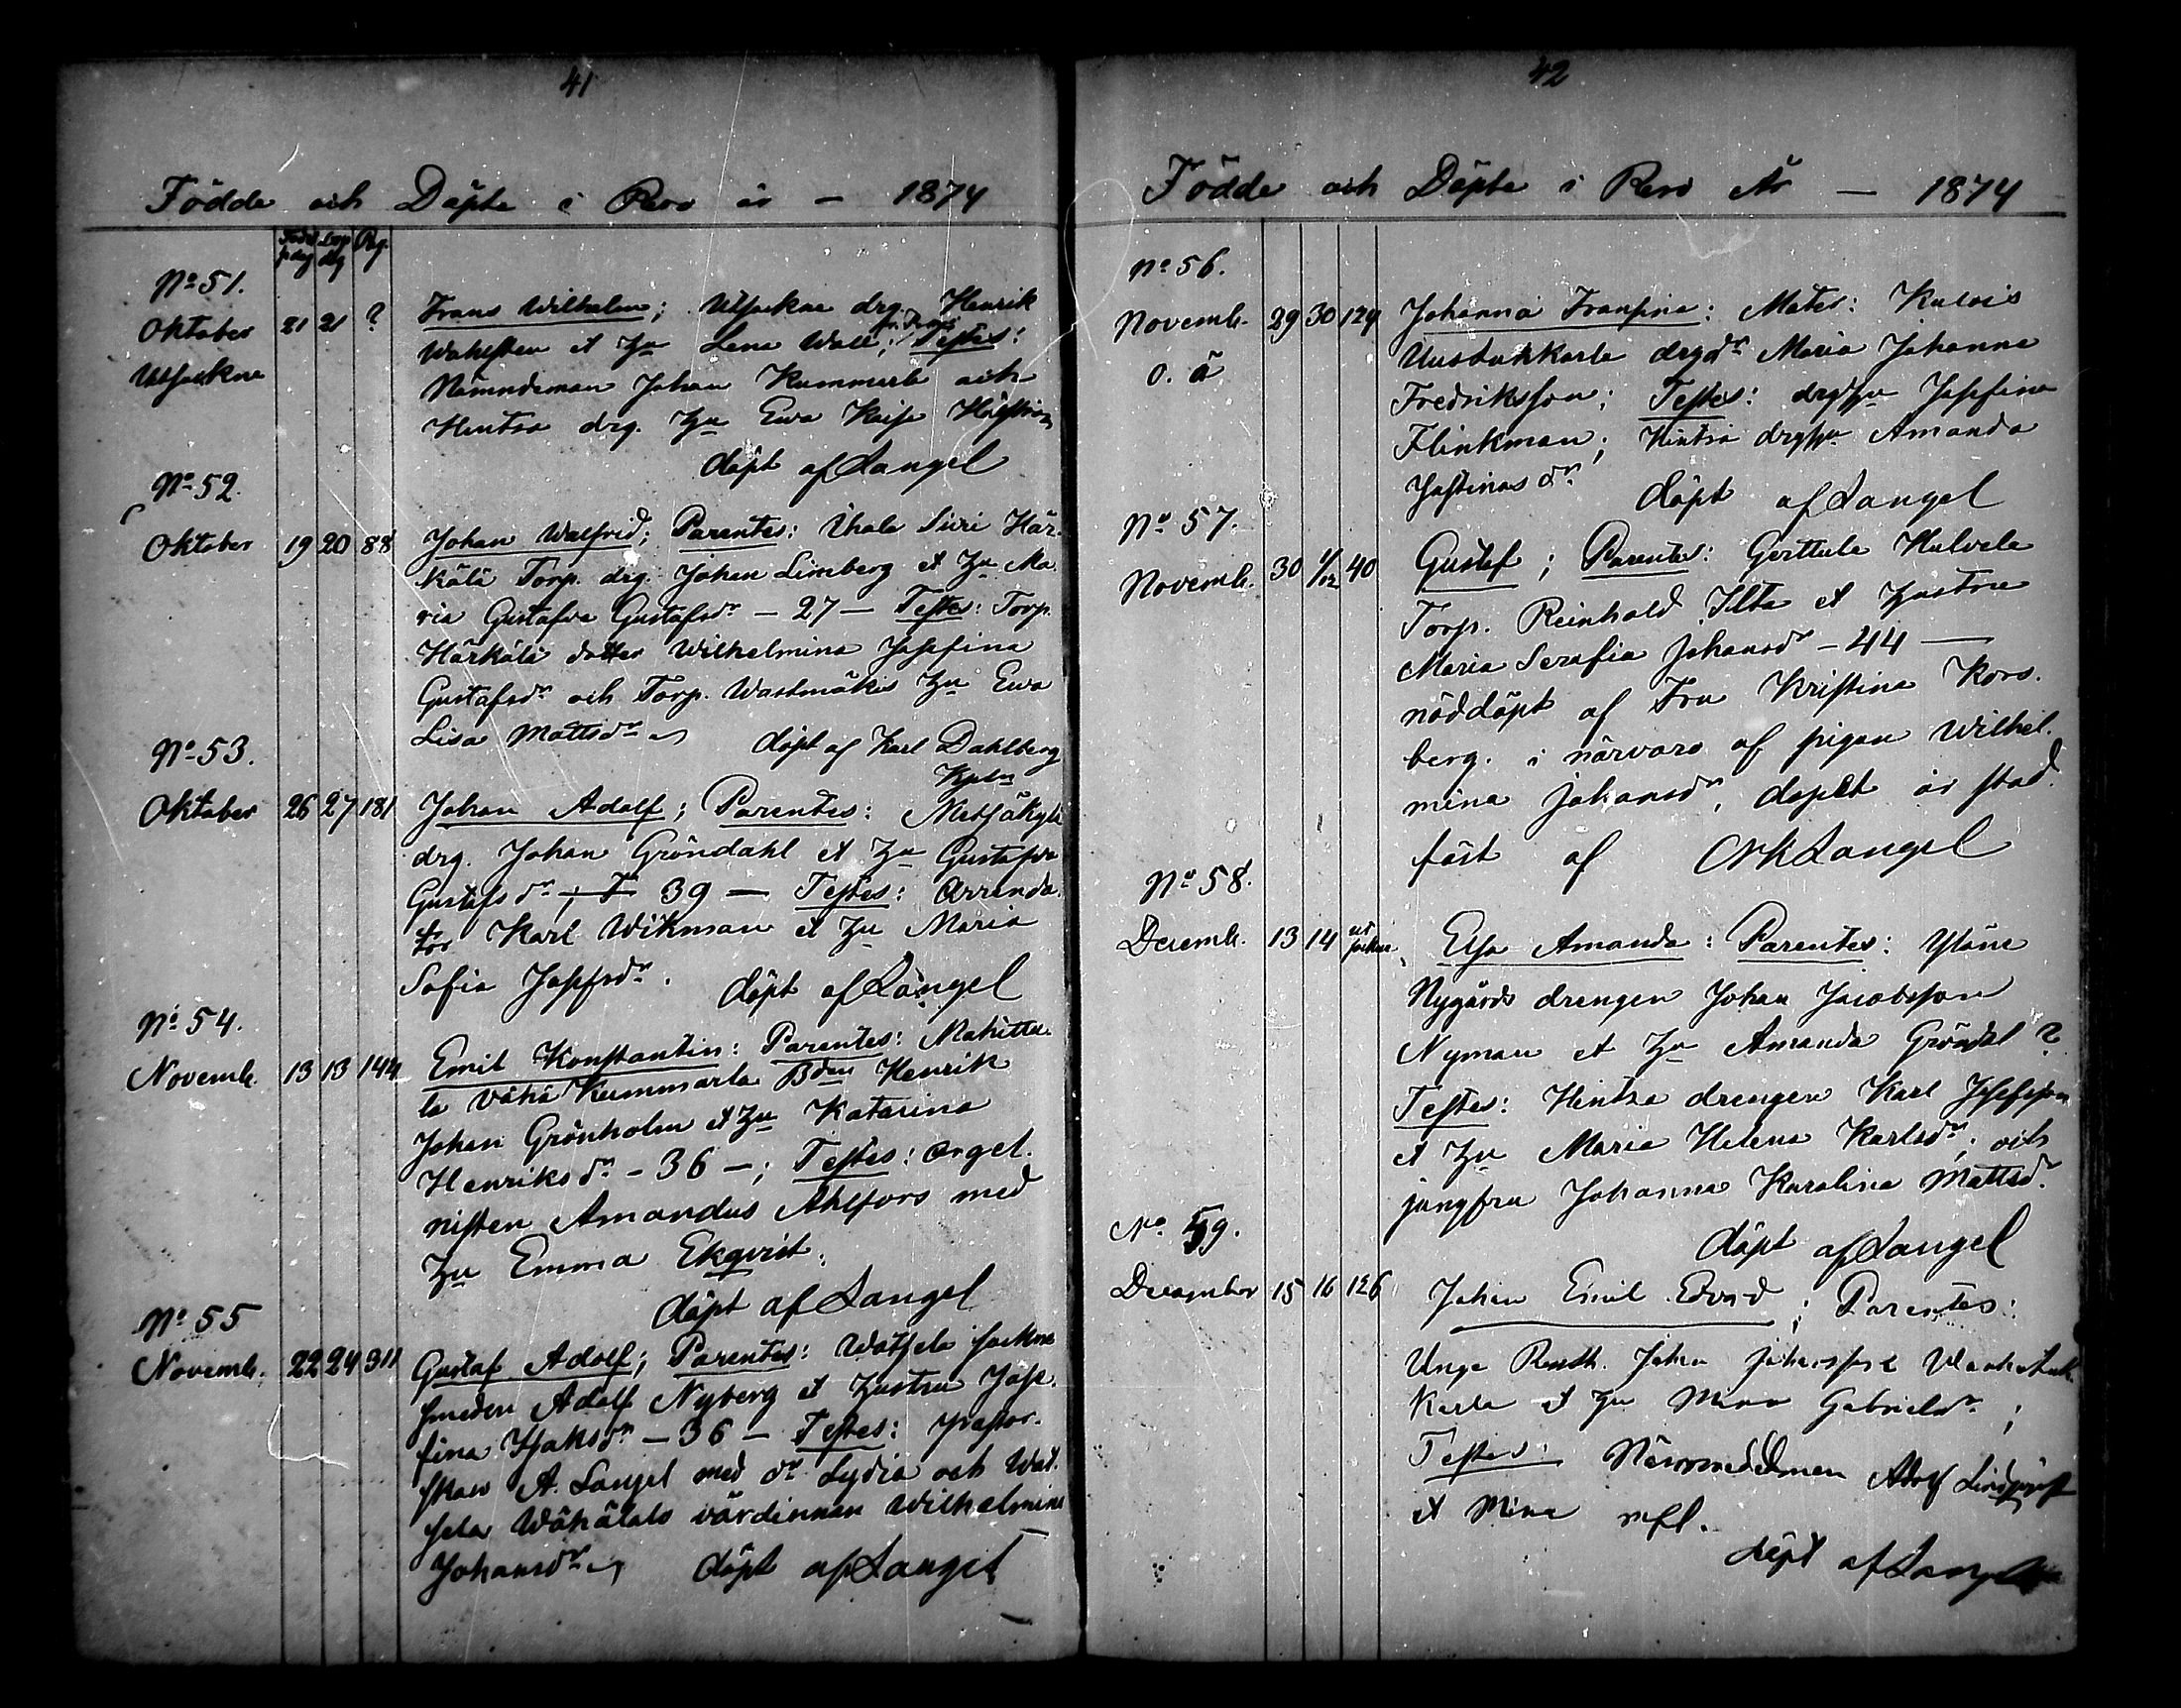 41
Födde och Döpte i Revo år - 1874
Född dag Döp dag Pag.
No 51.
Oktober 21 21 ? Frans Wilhelm; Utsockne drg. Henrik
Utsockne Wahlsten et hu Lena Wall; Testes:
Nämndeman Johan Kummerla och
Hintsa drg. hu Ewa Kaisa
döpt af Langel
No 52.
Oktober 19 20 88 Johan Walfrid; Parentes: Uhala Siiri Här-
kälä Torp. drg. Johan Limberg et hu Ma-
ria Gustafva Gustafsdr - 27 - Testes: Torp.
Härkälä dotter Wilhelmina Josefina
Gustafsdr och Torp. Wastmäkis hu Ewa
Lisa Mattsdr döpt af Karl Dahlberg
Kpln
No 53.
Oktober 26 27 181 Johan Adolf; Parentes: Metsäkylä
drg. Johan Gröndahl et hu Gustafva
Gustafsdr 39 - Testes: Arrenda-
tor Karl Wikman et hu Maria
Sofia Josefsdr. döpt af Langel
No 54.
Novemb. 13 13 144 Emil Konstantin: Parentes: Mahitta-
la Vähä Kummarla Bden Henrik
Johan Grönholm et hu Katarina
Henriksdr - 36 -; Testes: Orgel-
nisten Amandus Ahlfors med
hu Emma Ekqvist.
döpt af Langel
No 55
Novemb. 22 24 311 Gustaf Adolf; Parentes: Watsela sockne
smeden Adolf Nyberg et hustru Jose-
fina Isaksdr - 36 - Testes: Prestor-
skan A. Langel med dr Lydia och Wat-
sela Wähätalo värdinnan Wilhelmina
Johansdr döpt af Langel
42
Födde och Döpte i Revo År - 1874
No 56.
Novemb. 29 30 124 Johanna Fransina: Mater: Kulois
o. ä Uusitukkarla drgdr Maria Johanna
Fredriksson; Testes: drgshu Josefina
Flinkman; Hintsa drgshu Amanda
Justinasdr döpt af Langel
No 57.
Novemb. 30 1/12 40 Gustaf; Parentes: Gerttula Hulvela
Torp. Reinhold Ilta et hustru
Maria Serafia Johansdr - 44 -
nöddöpt af Fru Kristina Kors-
berg. i närvaro af pigan Wilhel-
mina Johansdr, dopet är stad-
fäst af Langel
No 58.
Decemb. 13 14 ut sockne Elsa Amanda: Parentes: Yläne
Nygårds drengen Johan Jacobsson
Nyman et hu Amanda Gröndal ?
Testes: Hintsa drengen Karl Josefsson
et hu Maria Helena Karlsdr, och
jungfru Johanna Karolina Mattsdr.
döpt af Langel
No. 59.
December 15 16 126 Johan Emil Edvard; Parentes:
Unge Rusth. Johan Johansson
Karla et hu Mina Gabrielsdr;
Testes: Nämndeman Adolf Lindqvist
et Mina
döpt af Langel